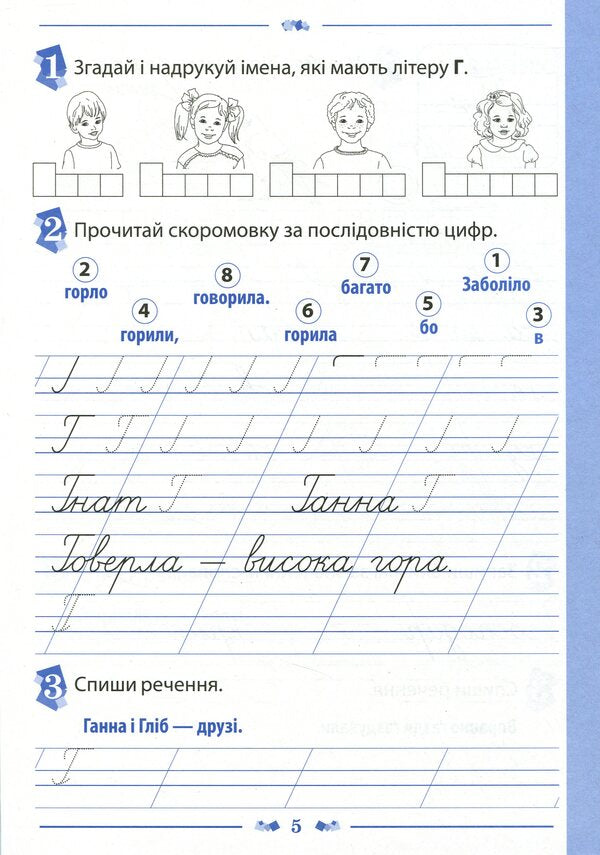 1 Згадай і надрукуй імена, які мають літеру Г.
2 Прочитай скоромовку за послідовністю цифр.
2 8 7 1
горло говорила. багато Заболіло
4 6 5 3
горили, горила бо в
Г
Г Г
Гнат Г Ганна Г
Говерла — висока гора.
Г
3 Спиши речення.
Ганна і Гліб — друзі.
Г
5